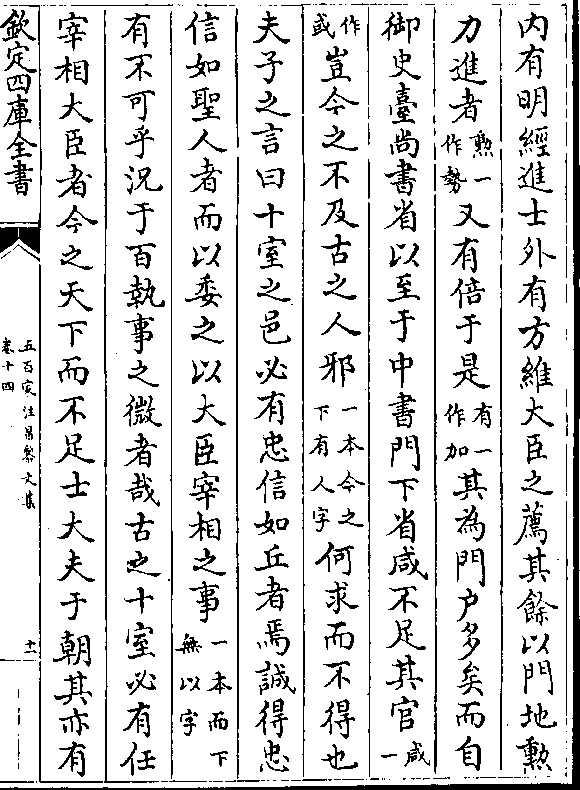 内有明經進士外有方維大臣之薦其餘以門地勲
力進者勲一作勢又有倍于是有一作加其為門户多矣而自
御史臺尚書省以至于中書門下省咸不足其官咸一
作或豈今之不及古之人邪一本今之下有人字何求而不得也
夫子之言曰十室之邑必有忠信如丘者焉誠得忠
信如聖人者而以委之以大臣宰相之事一本而下無以字
有不可乎況于百執事之微者哉古之十室必有任
宰相大臣者今之天下而不足士大夫于朝其亦有
欽定四庫全書
五百家注昌黎文集
卷十四
十一